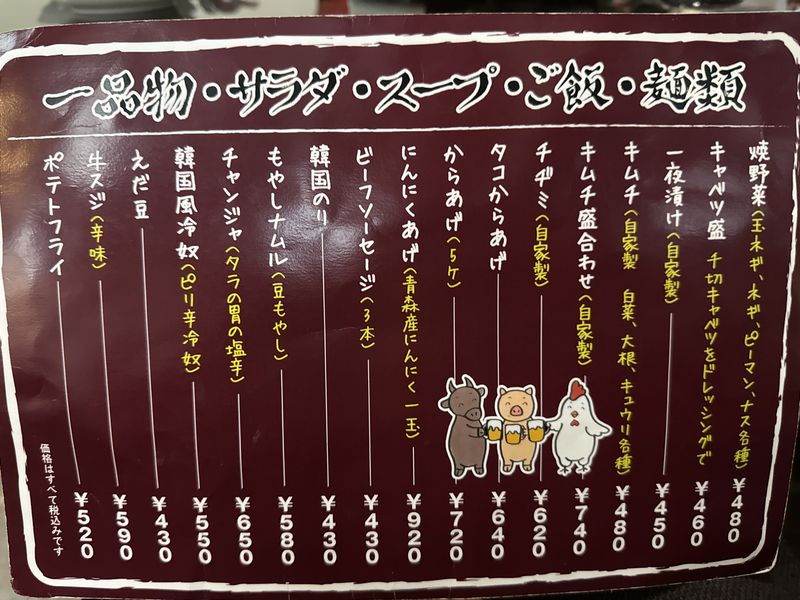 一品物・サラダ・スープ・ご飯・麺類
焼野菜(玉ネギ、ネギ、ピーマン、ナス各種) ¥480
キャベツ盛 千切キャベツをドレッシングで ¥460
一夜漬け(自家製) ¥450
キムチ(自家製 白菜、大根、キュウリ各種) ¥480
キムチ盛合わせ(自家製) ¥740
チヂミ(自家製) ¥620
タコからあげ ¥640
からあげ(5ケ) ¥720
にんにくあげ(青森産にんにく一玉) ¥920
ビーフソーセージ(3本) ¥430
韓国のり ¥430
もやしナムル(豆もやし) ¥580
チャンジャ(タラの胃の塩辛) ¥650
韓国風冷奴(ピリ辛冷奴) ¥550
えだ豆 ¥430
牛スジ(辛味) ¥590
ポテトフライ ¥520
価格はすべて税込みです